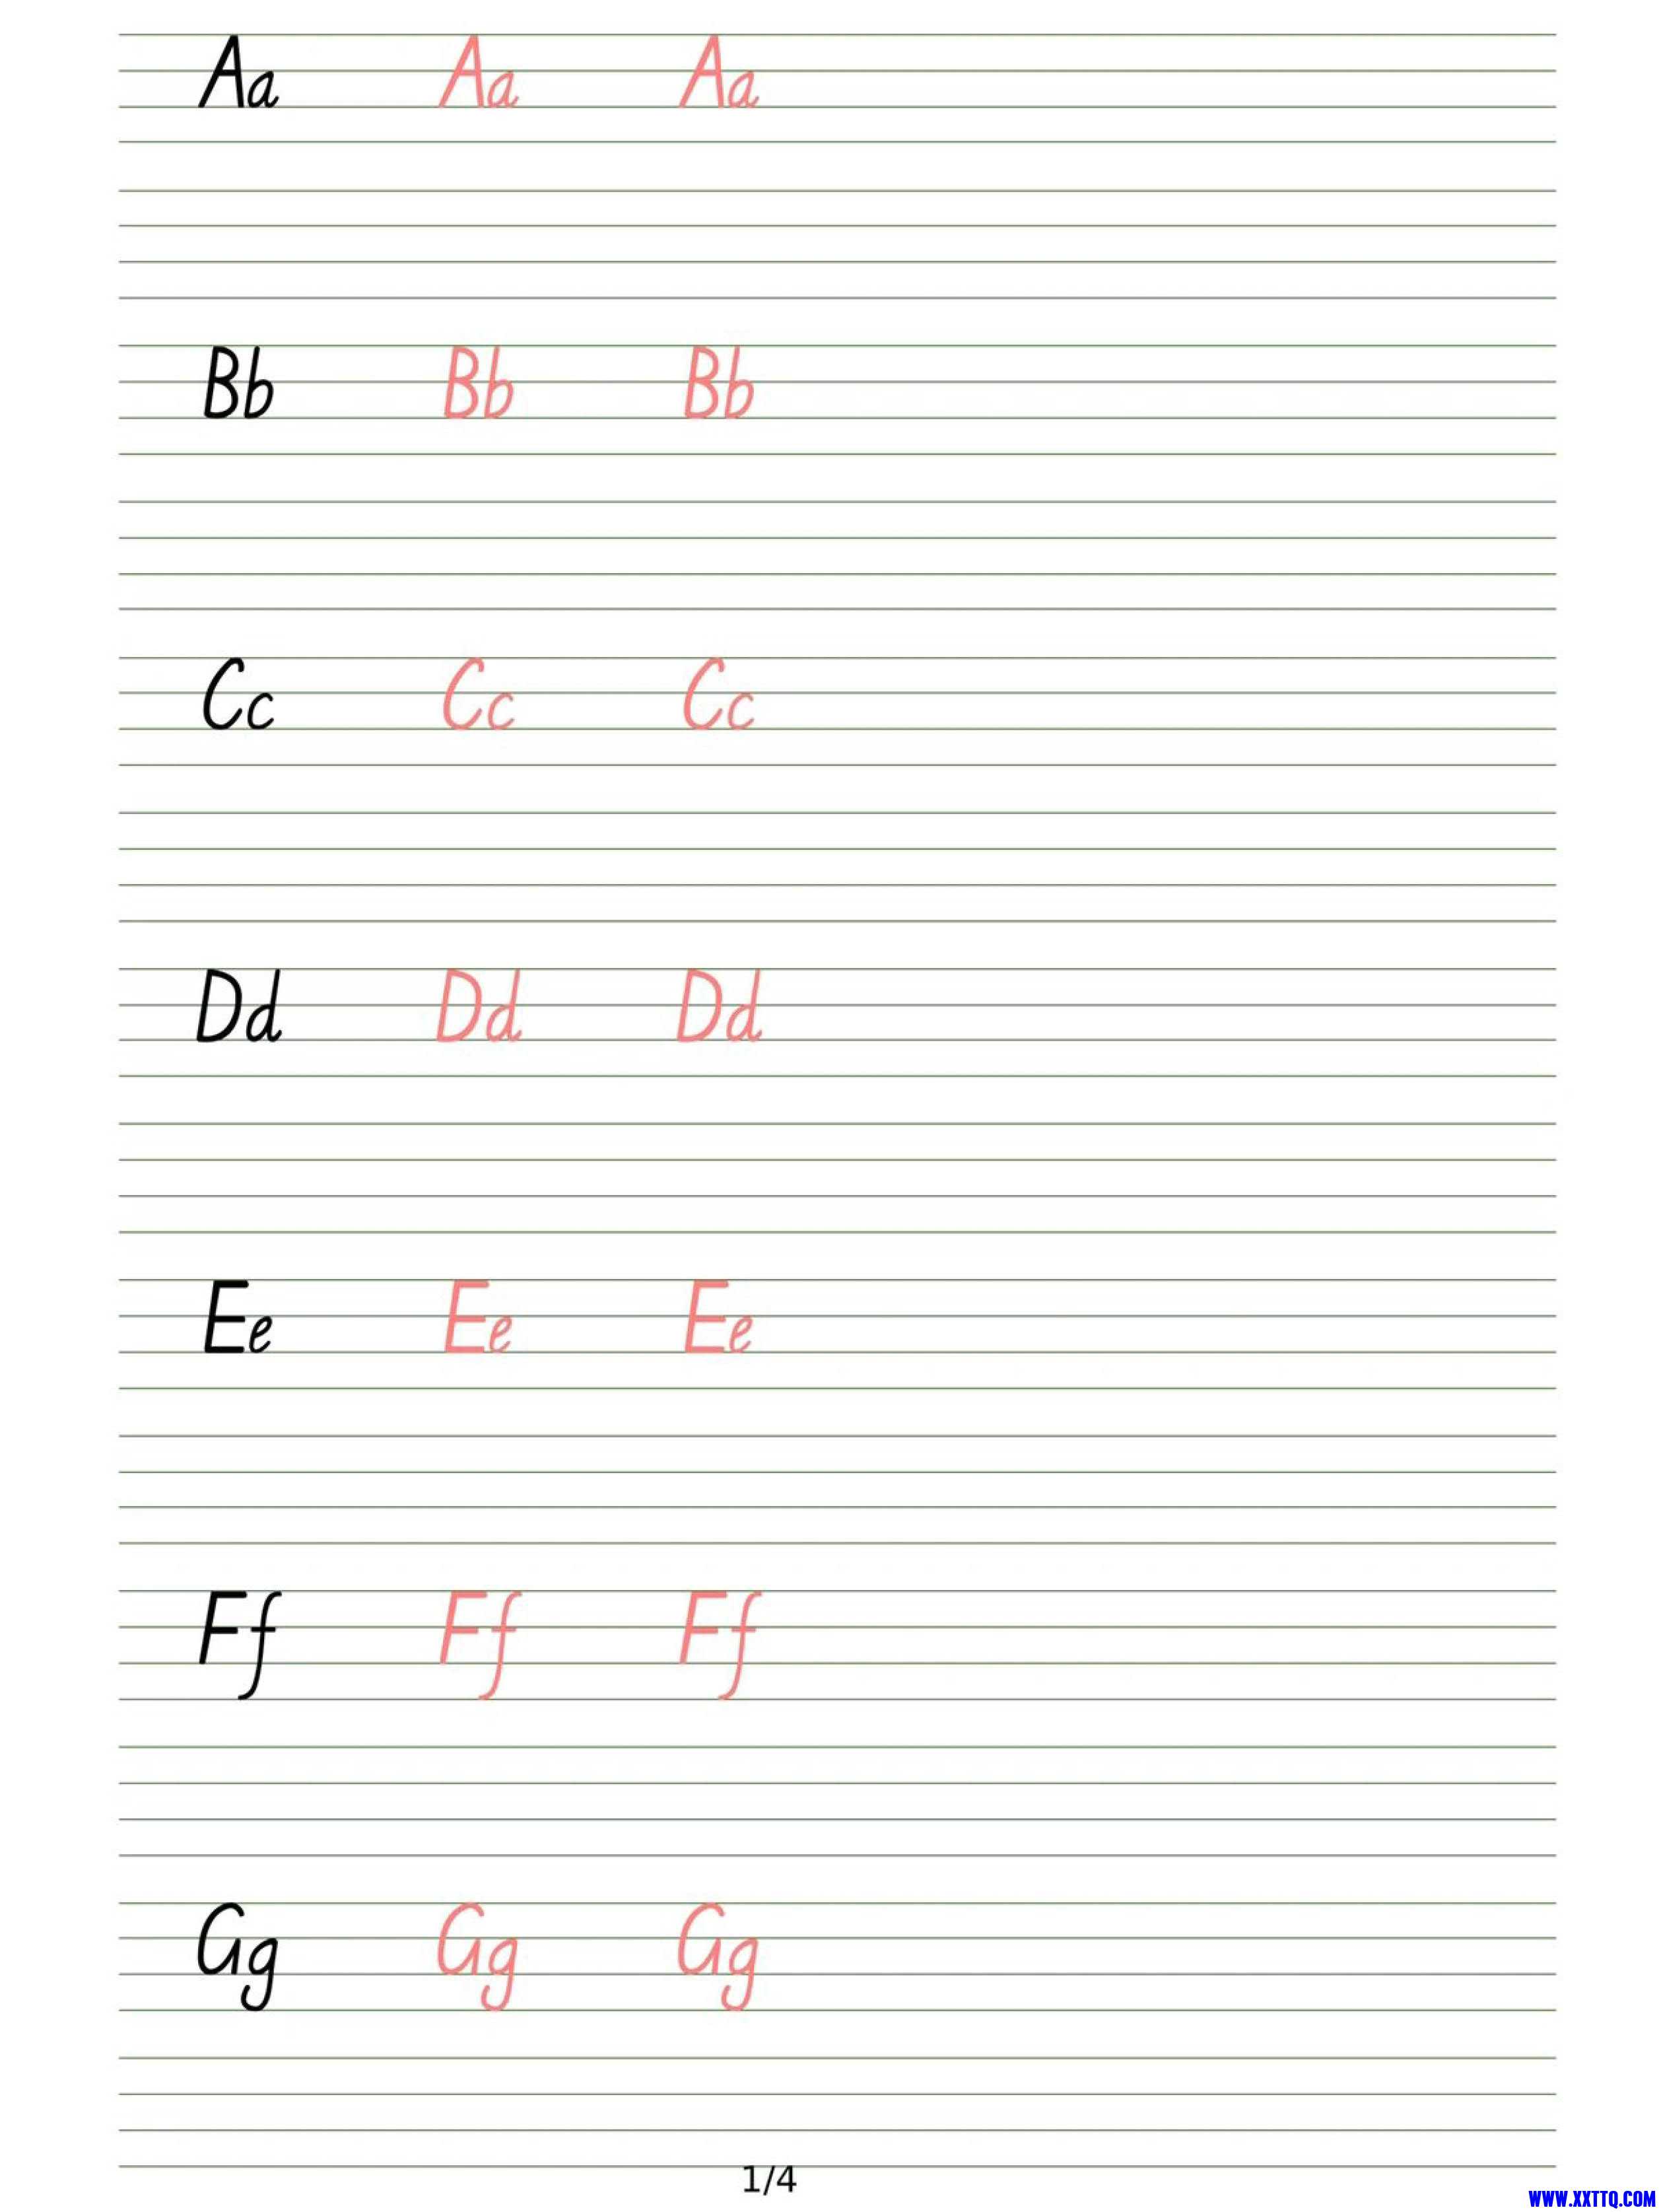 Aa Aa Aa
Bb Bb Bb
Cc Cc Cc
Dd Dd Dd
Ee Ee Ee
Ff Ff Ff
Gg Gg Gg
1/4
WWW.XXTTQ.COM